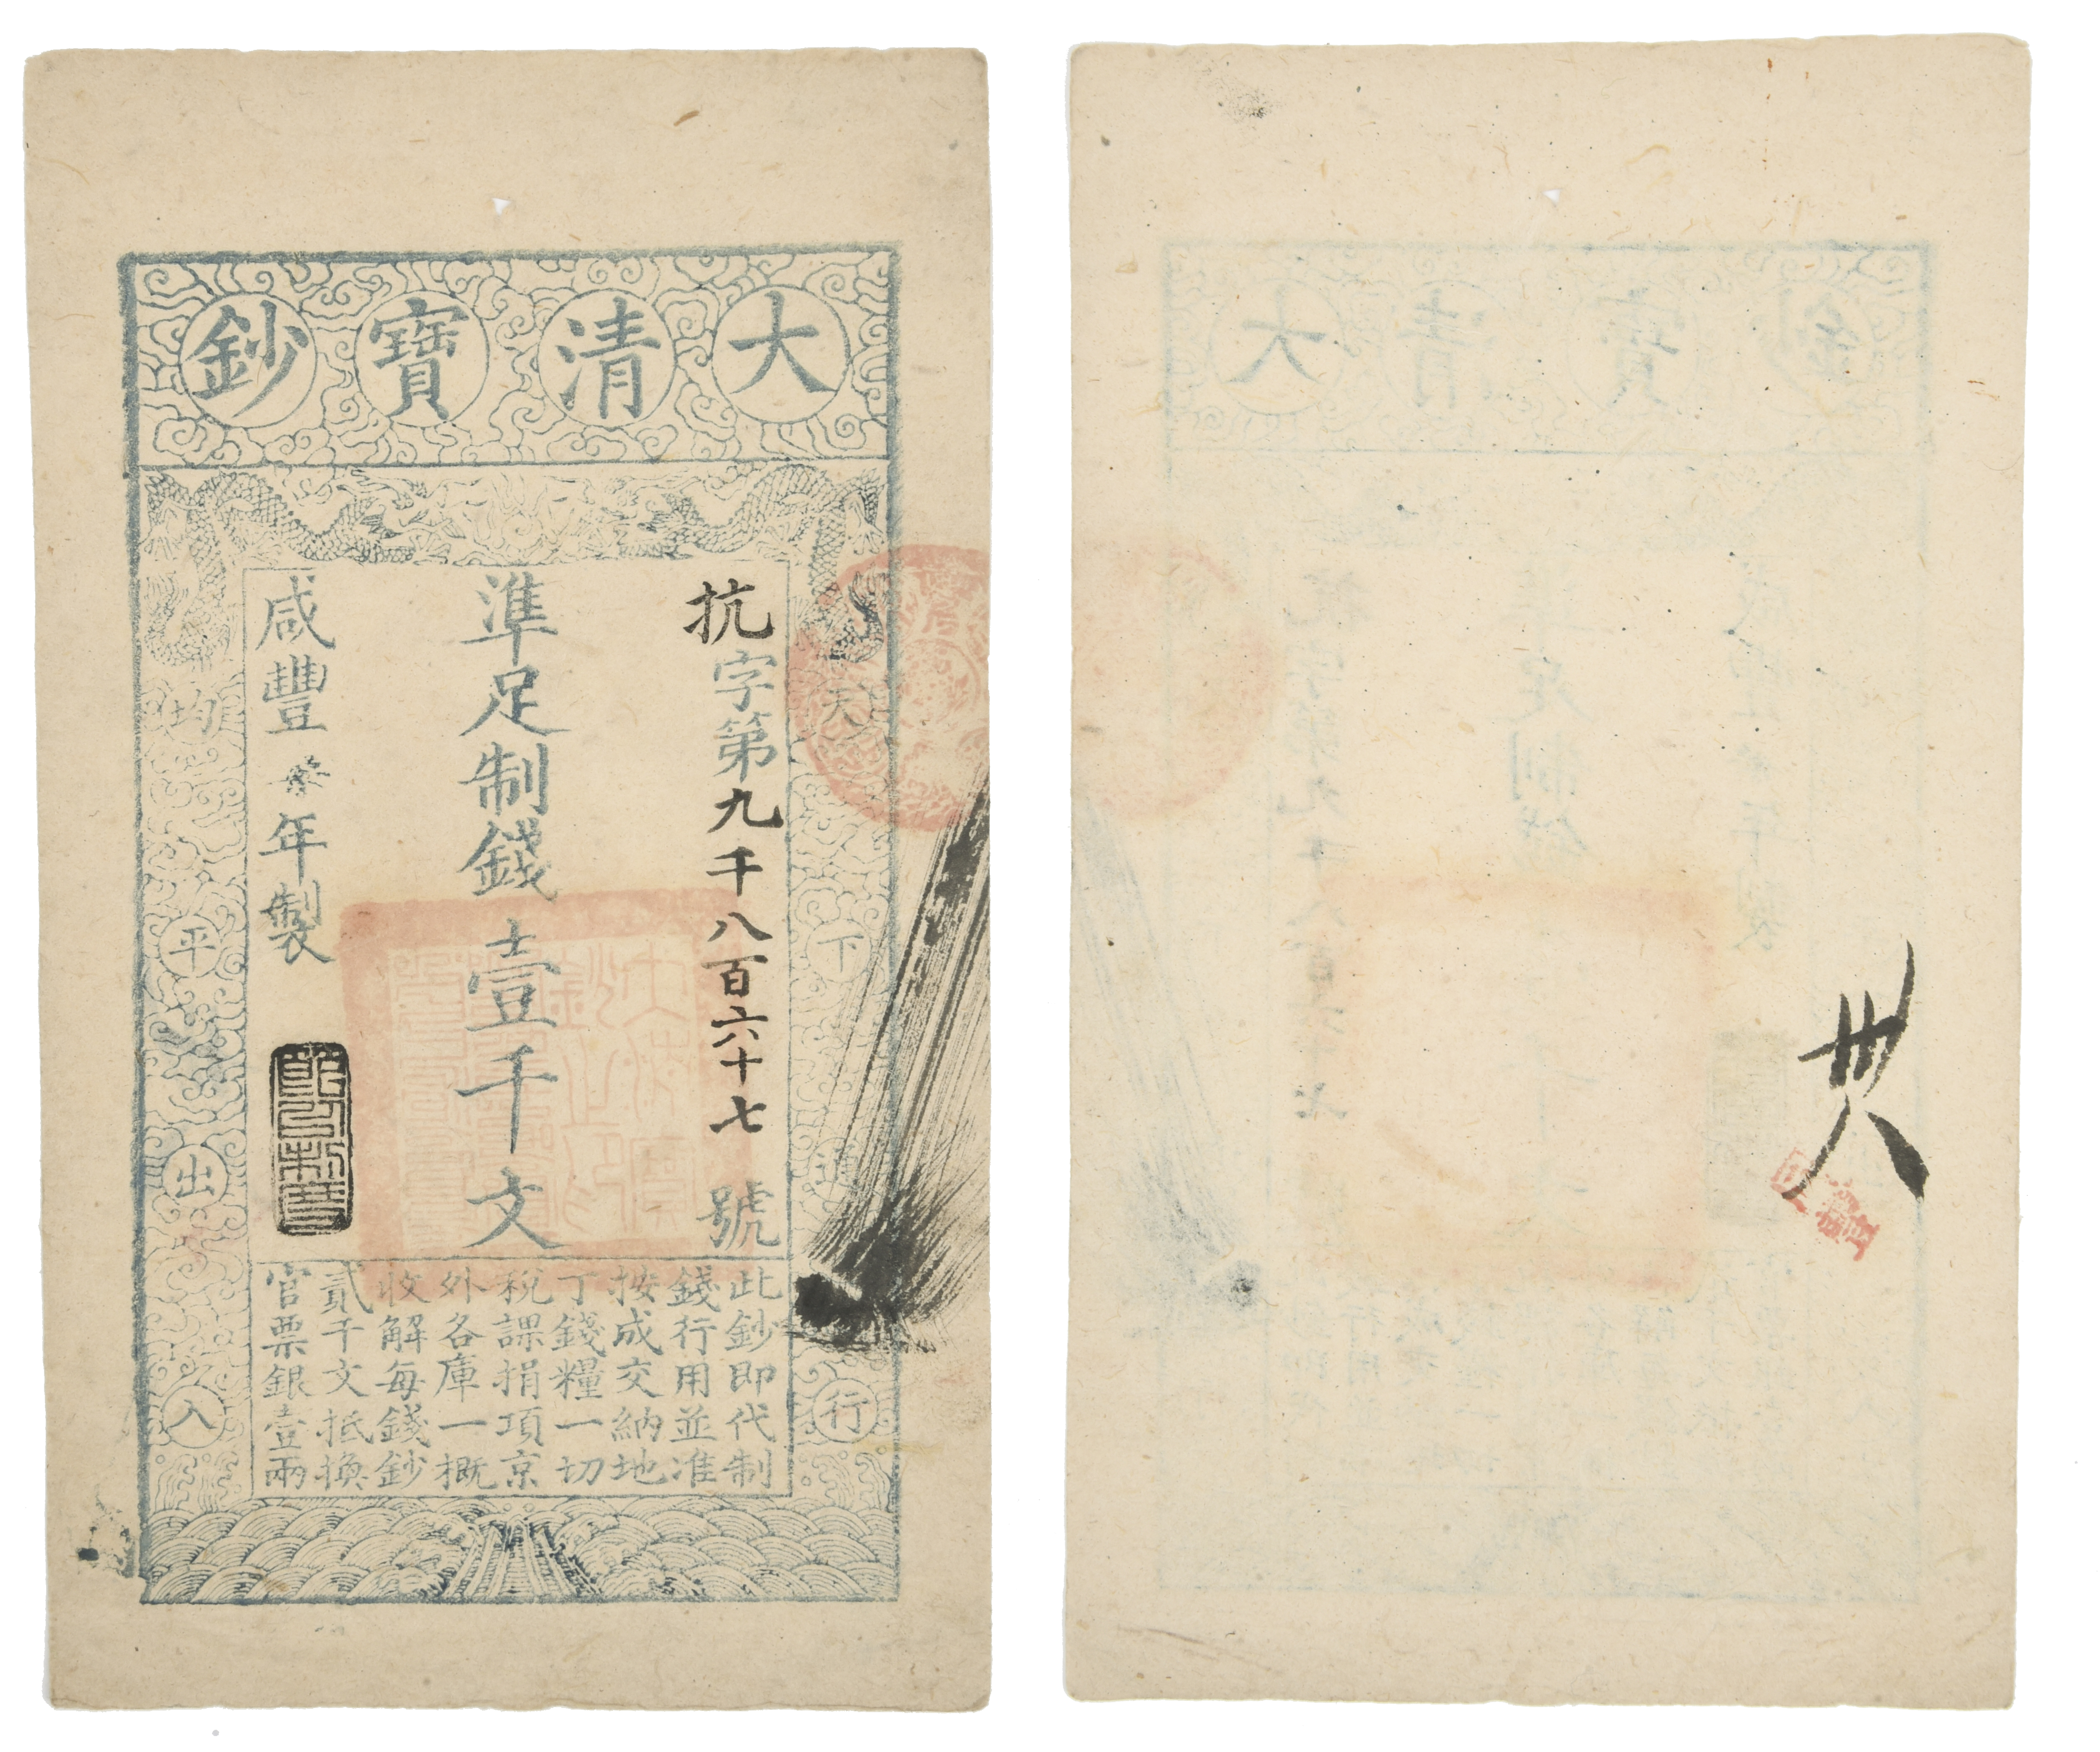 大清寶鈔
天下通行
抗字第九千八百六十七號
準足制錢壹千文
咸豐年製
均平出入
此鈔即代制
錢行用並准
按成交納地
丁錢糧一切
稅課捐項京
外各庫一概
收解每錢鈔
貳千文抵換
官票銀壹兩